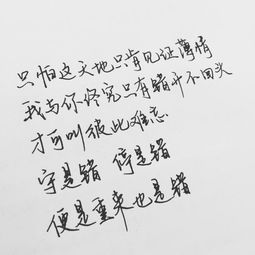 只怕这天地只肯见证薄情
我与你终究只有错中不回头
才可叫彼此难忘
守是错 停是错
便是重来也是错